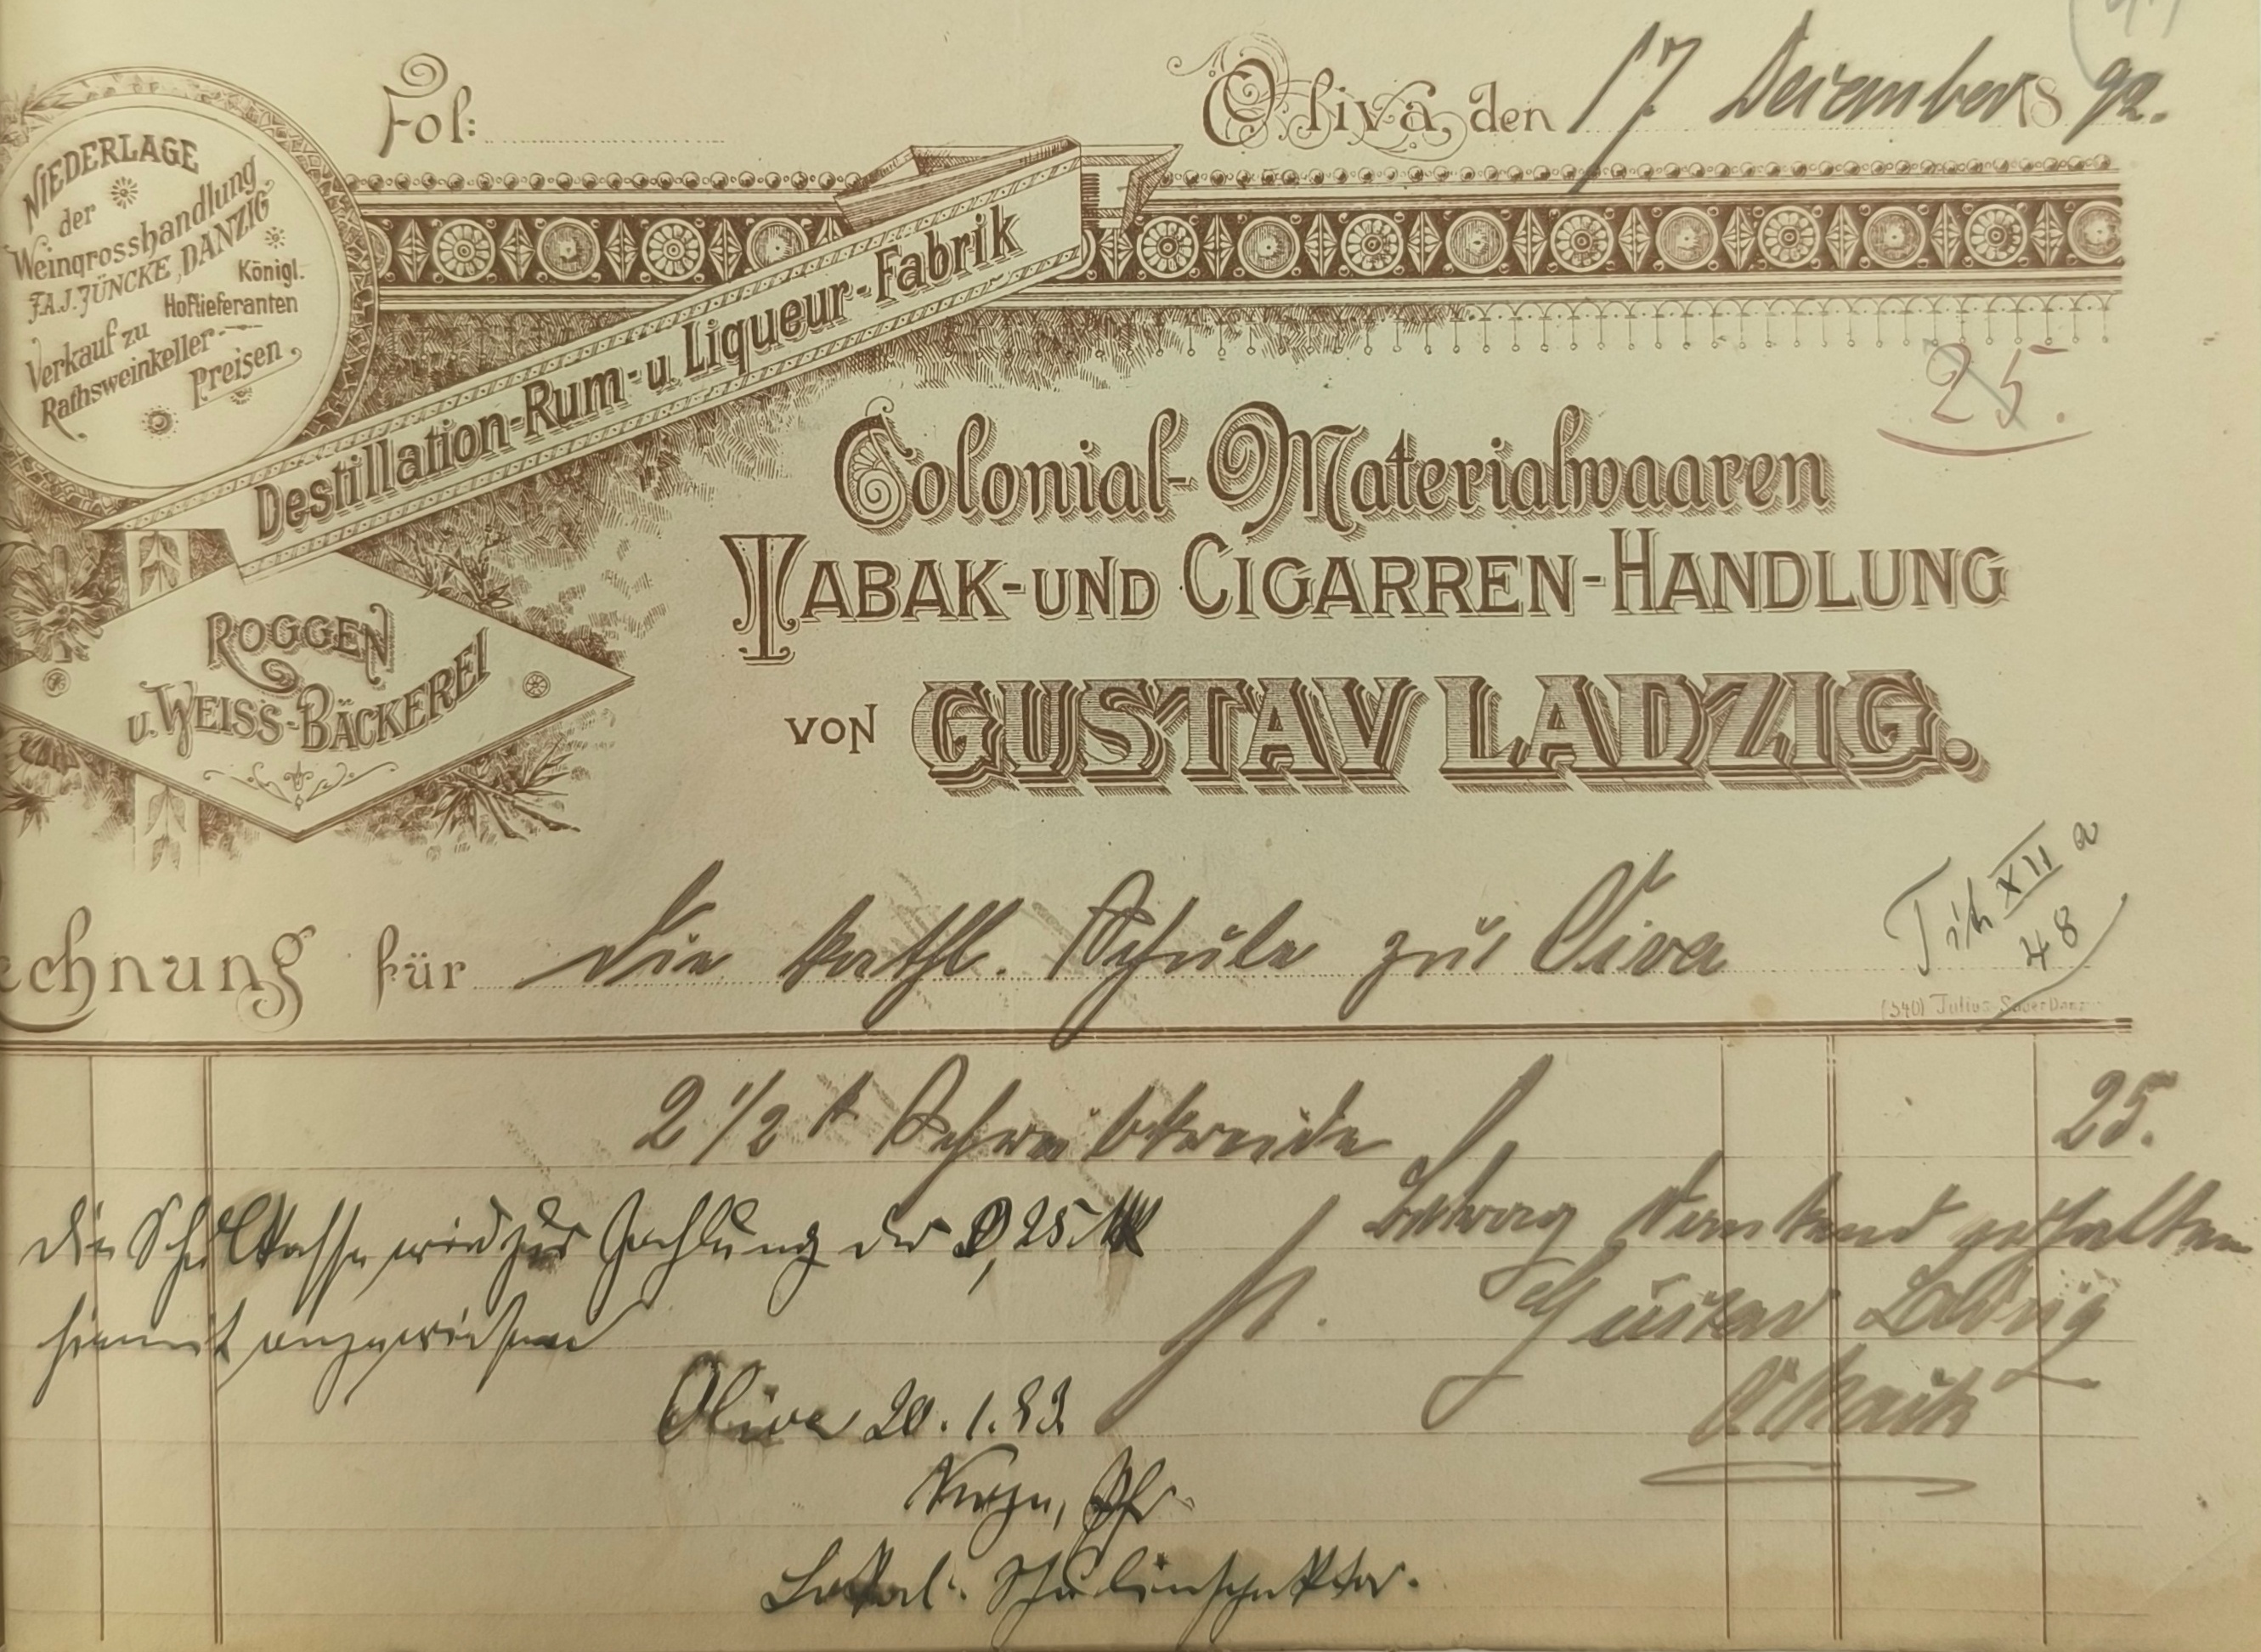 Fol:
Oliva, den 17 Dezember 18 92.
NIEDERLAGE
der
Weingrosshandlung
F.A.J. JÜNCKE, DANZIG
Königl.
Hoflieferanten
Verkauf zu
Rathsweinkeller-
Preisen
Destillation-Rum-u. Liqueur-Fabrik
25.
Colonial-Materialwaaren
TABAK-UND CIGARREN-HANDLUNG
VON GUSTAV LADZIG.
ROGGEN
u. WEISS-BÄCKEREI
Tit XII a
48
echnung für die kathl. Schule zu Oliva
(540) Julius Sauer Danz
2 1/2 Schreibkreide 25.
Betrag dankend erhalten
Gustav Ladzig
Die Schulkasse wird zur Zahlung der 0,25 M
hiermit angewiesen
Oliva 20. 1. 93
Pfr.
Lokal-Schulinspektor.